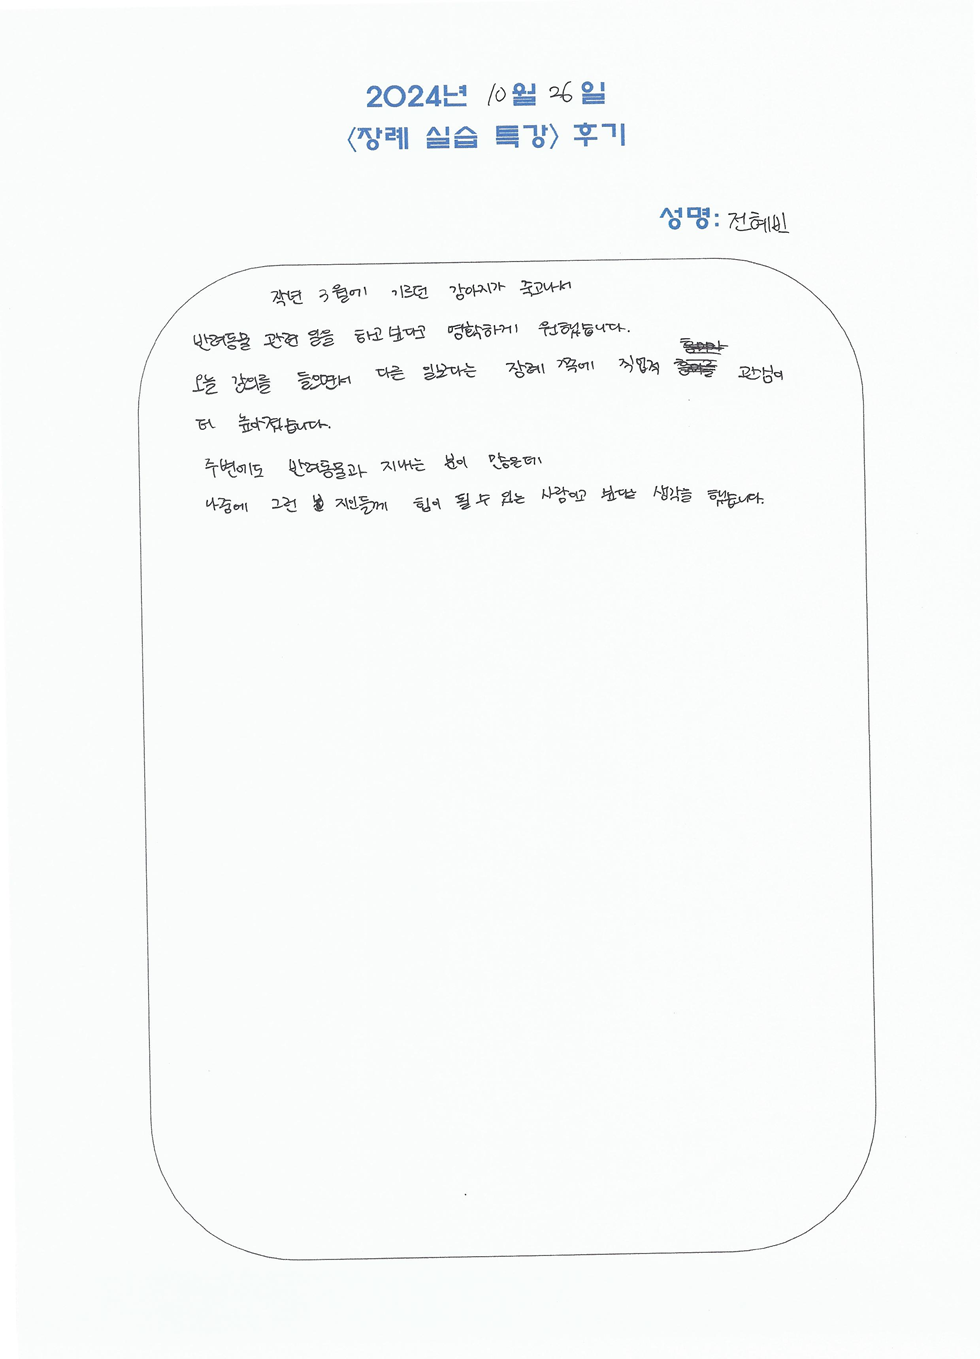 2024년 10월 26일
<장례 실습 특강> 후기
성명: 전혜빈
작년 3월에 기르던 강아지가 죽고나서
반려동물 관련 일을 하고보다고 명확하게 원했습니다.
오늘 강의를 들으면서 다른 일보다는 장례 쪽에 직업적 관심이
더 높아졌습니다.
주변에도 반려동물과 지내는 분이 많은데
나중에 그런 지인들께 힘이 될 수 있는 사람이고 싶다는 생각을 했습니다.